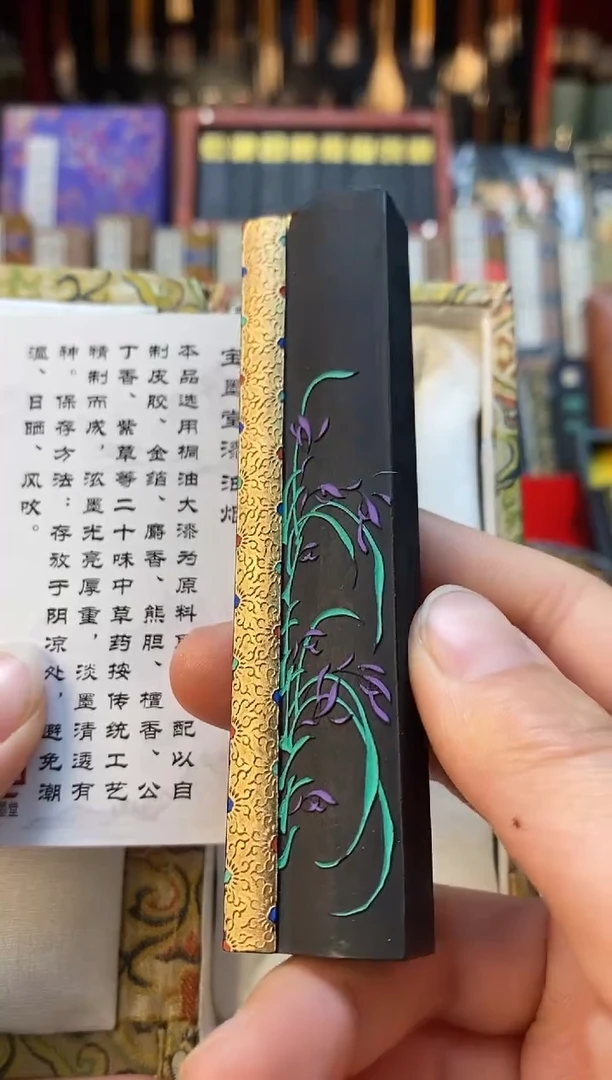 宝墨堂漆油烟
本品选用桐油大漆为原料配以自
制皮胶、金箔、麝香、熊胆、檀香、公
丁香、紫草等二十味中草药按传统工艺
精制而成，浓墨光亮厚重，淡墨清透有
神。保存方法：存放于阴凉处，避免潮
湿、日晒、风吹。
墨堂